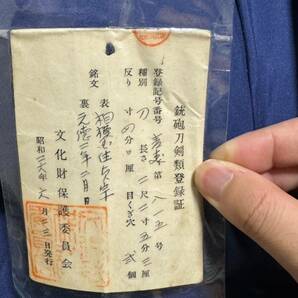 銃砲刀剣類登録証
登録記号番号 第八一五号
種別 刀 長さ 二尺二寸五分三厘
反り 寸四分 厘 目くぎ穴 弐個
銘文 表 相模国住
裏 元徳二年二月日
文化財保護委員会
昭和二六年 月二三日発行